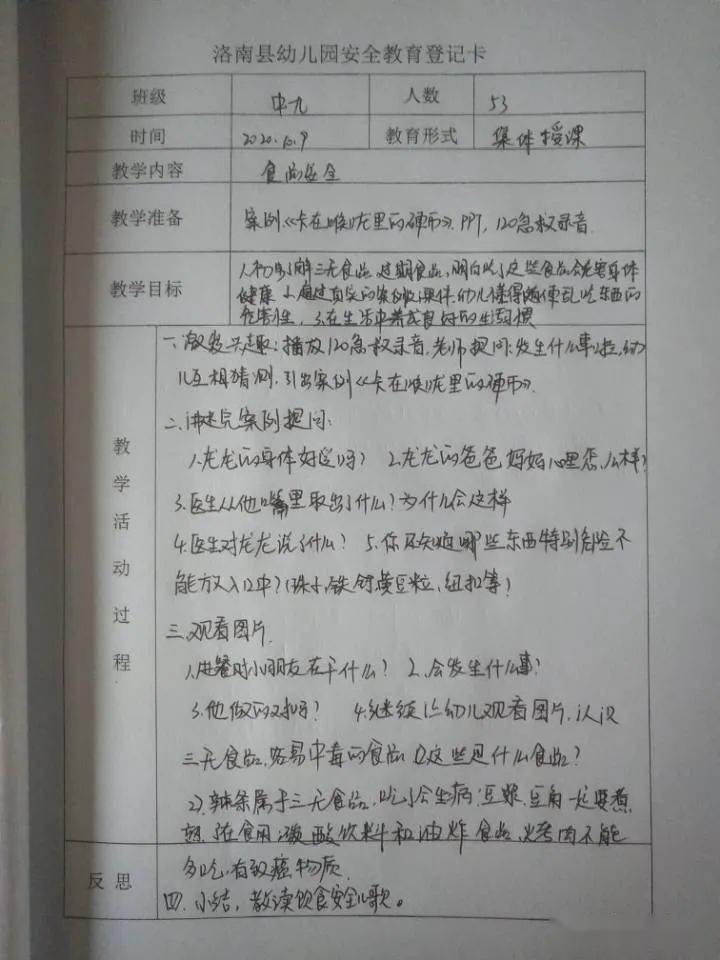 洛南县幼儿园安全教育登记卡
班级 中九 人数 53
时间 2020.10.9 教育形式 集体授课
教学内容 食品安全
教学准备 案例《卡在喉咙里的硬币》. PPT, 120急救录音
教学目标
1.初步了解三无食品、过期食品,明白吃了这些食品会危害身体
健康 2.通过真实的案例及课件.幼儿懂得随便乱吃东西的
危害性. 3.在生活中养成良好的生活习惯
教学活动过程
一.激发兴趣:播放120急救录音.老师提问:发生什么事啦,幼
儿互相猜测.引出案例《卡在喉咙里的硬币》.
二.讲述完案例提问:
1.龙龙的身体好受吗? 2.龙龙的爸爸妈妈心里怎么样?
3.医生从他嘴里取出了什么?为什么会这样
4.医生对龙龙说了什么? 5.你还知道哪些东西特别危险不
能放入口中?(珠子,铁钉,黄豆粒,纽扣等)
三.观看图片.
1.进餐时小朋友在干什么? 2.会发生什么事?
3.他做的对吗? 4.继续让幼儿观看图片.认识
三无食品,容易中毒的食品 ①这些是什么食品?
2)辣条属于三无食品,吃了会生病.豆浆.豆角一定要煮
熟.在食用.碳酸饮料和油炸食品,烤肉不能
反思
多吃,有致癌物质.
四.小结,教读饮食安全儿歌。